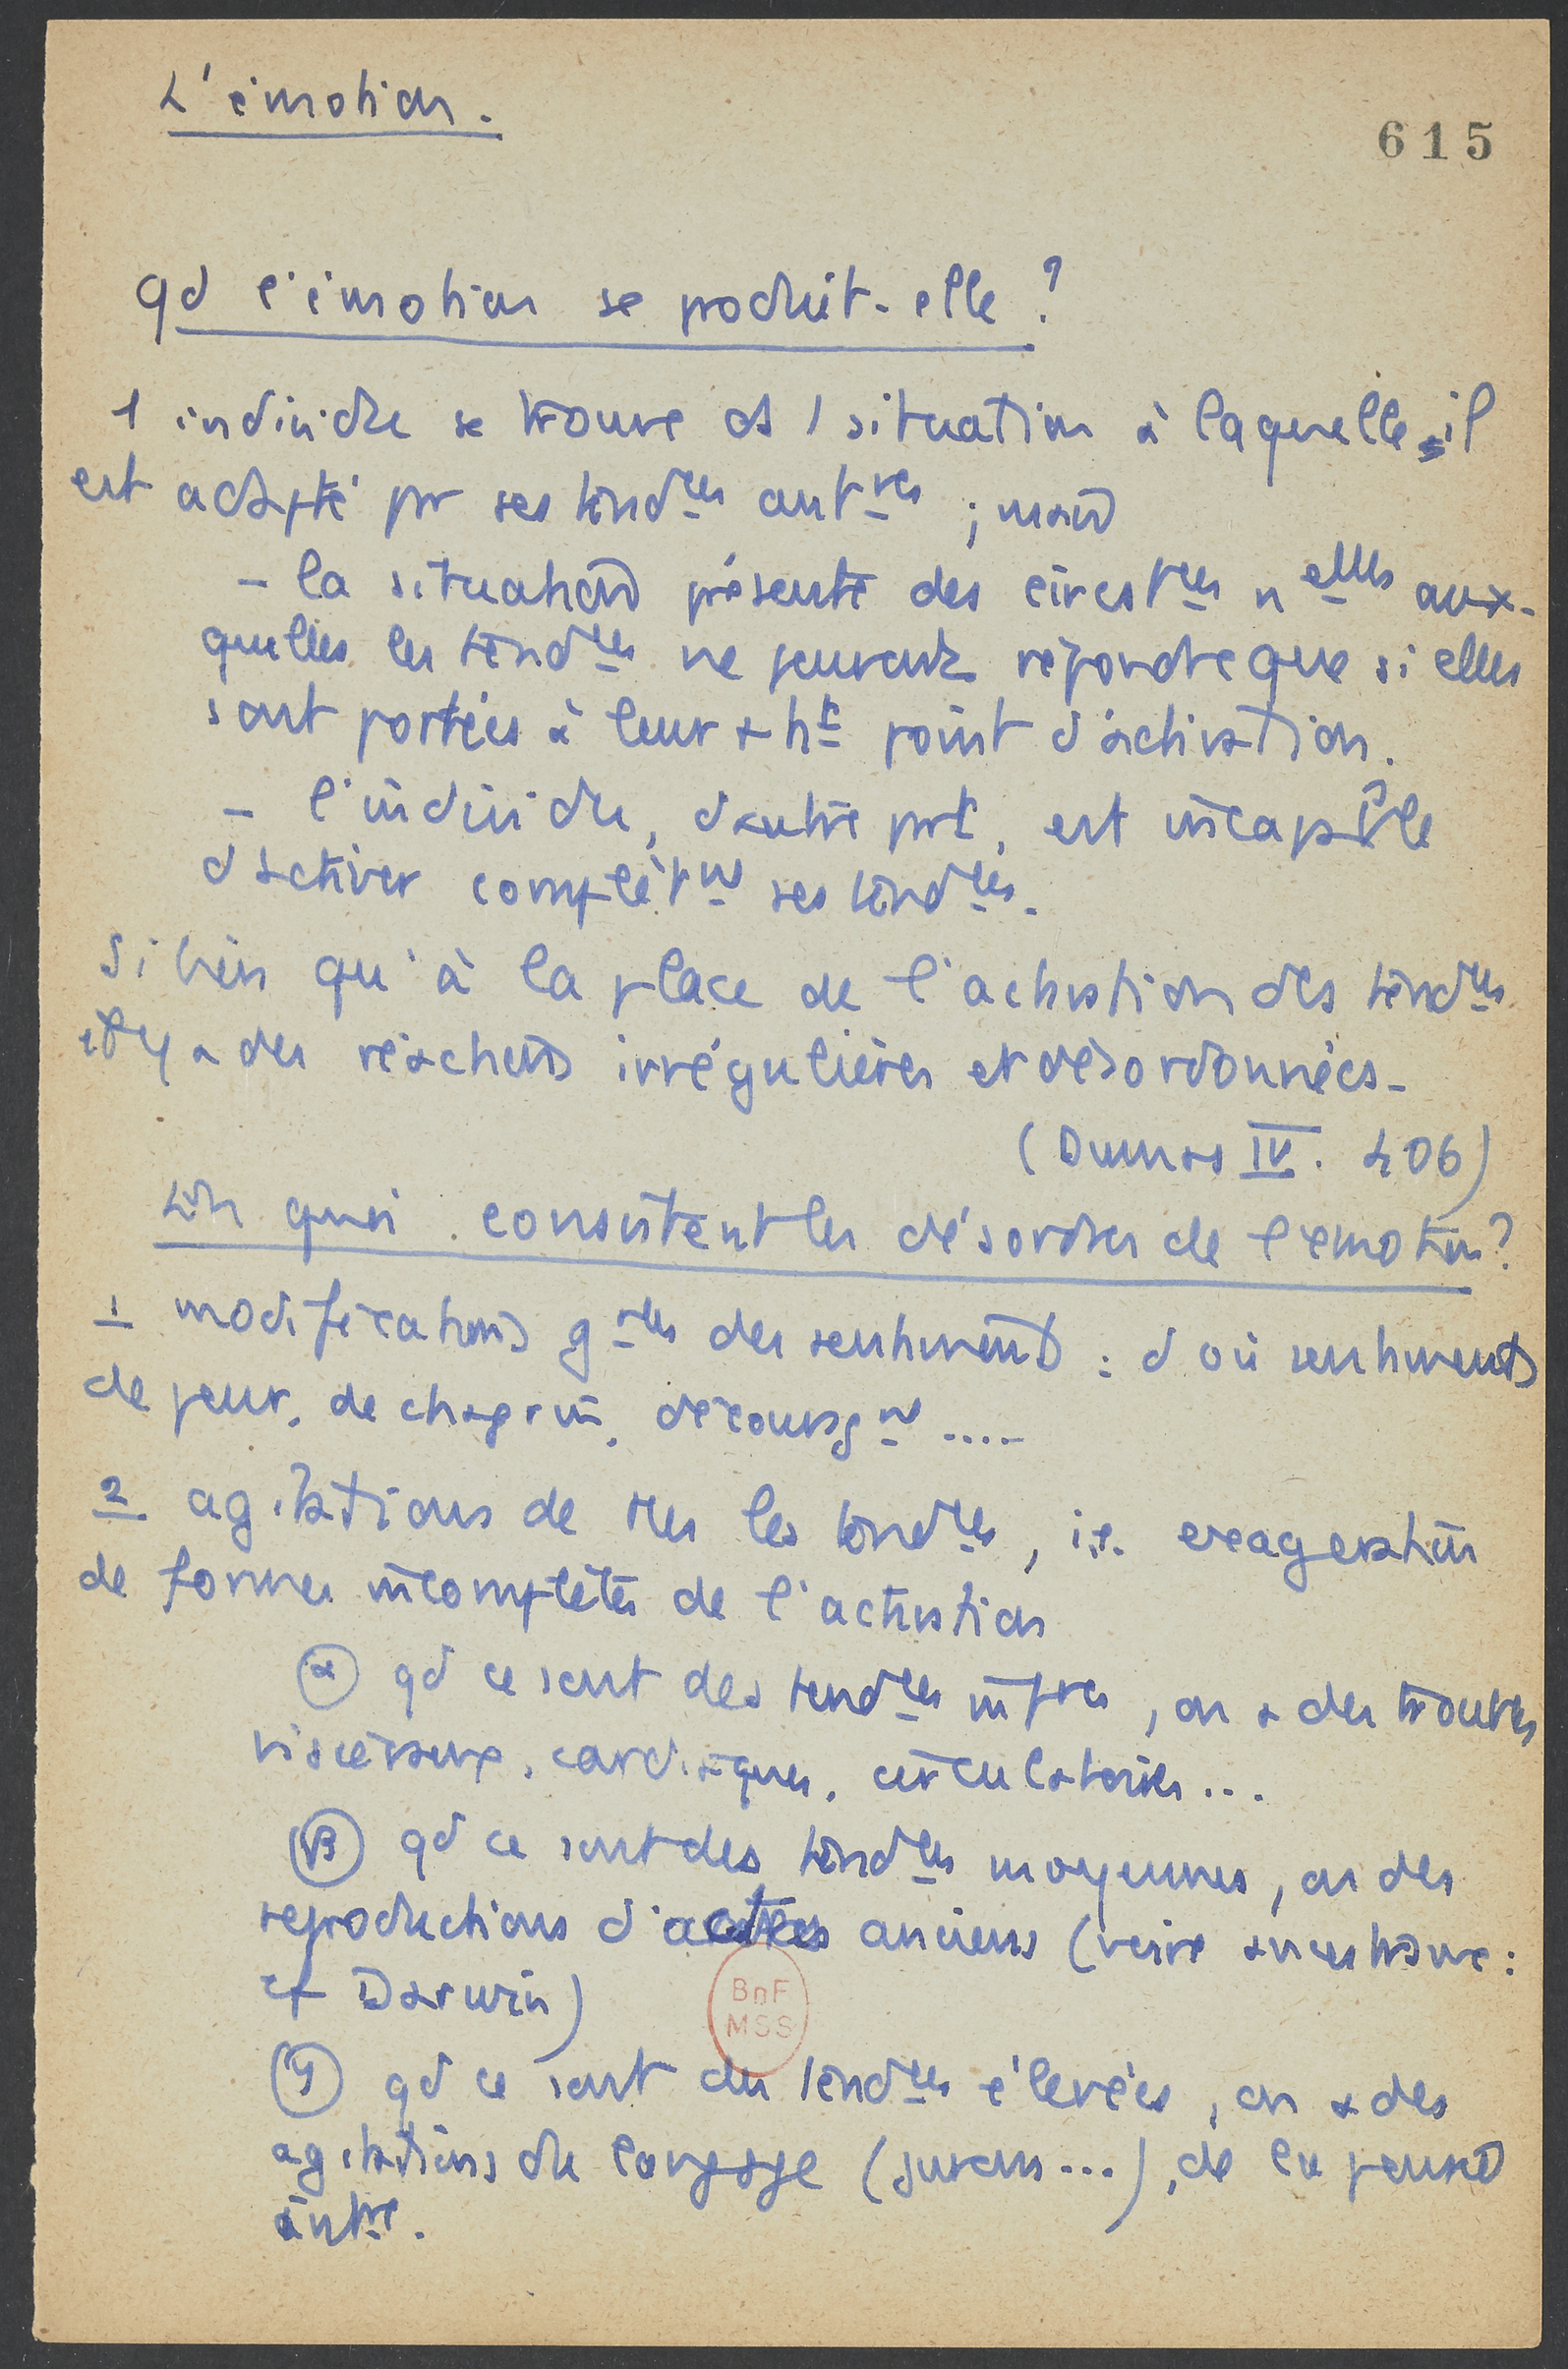 L'émotion.
615
qd l'émotion se produit-elle ?
1 individu se trouve ds 1 situation à laquelle il
est adapté pr ses tendces antres ; mais
- la situation présente des circstces nelles aux-
quelles les tendces ne peuvent répondre que si elles
sont portées à leur + ht point d'activation.
- l'individu, d'autre part, est incapable
d'activer complètmt ses tendces.
Si bien qu'à la place de l'activation des tendces
il y a des réactions irrégulières et désordonnées -
(Dumas IV. 406)
En quoi consistent les désordres de l'émotion ?
1 modifications gales des sentiments : d'où sentiments
de peur, de chagrin, découragmt ....
2 agitations de ttes les tendces, i.e. exagération
de formes incomplètes de l'activation
α qd ce sont des tendces infres, on a des troubles
viscéraux, cardiaques, circulatoires ...
β qd ce sont des tendces moyennes, on des
reproductions d'actes anciens (voire ancestraux :
cf Darwin)
BnF
MSS
γ qd ce sont des tendces élevées, on a des
agitations du langage (jurons ...), de la pensée
intre.